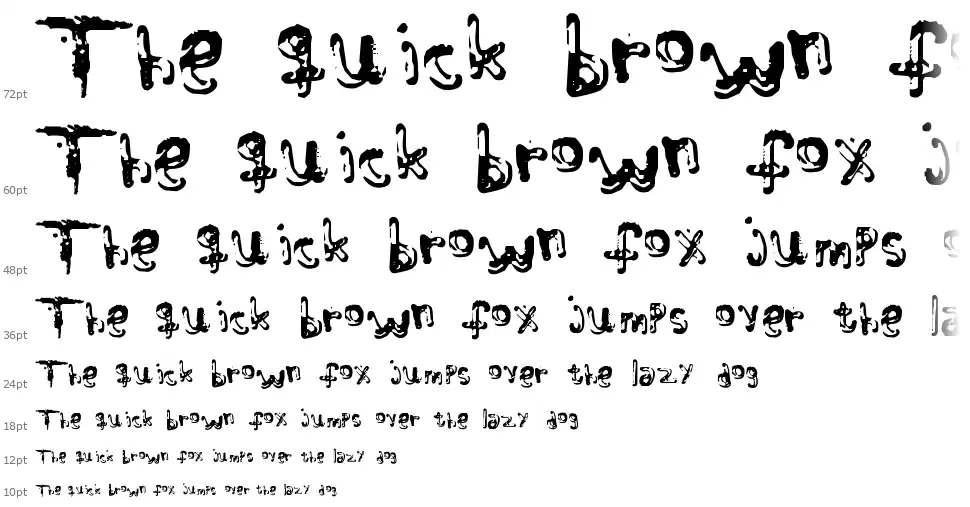 72pt The quick brown
60pt The quick brown fox
48pt The quick brown fox jumps
36pt The quick brown fox jumps over the la
24pt The quick brown fox jumps over the lazy dog
18pt The quick brown fox jumps over the lazy dog
12pt The quick brown fox jumps over the lazy dog
10pt The quick brown fox jumps over the lazy dog